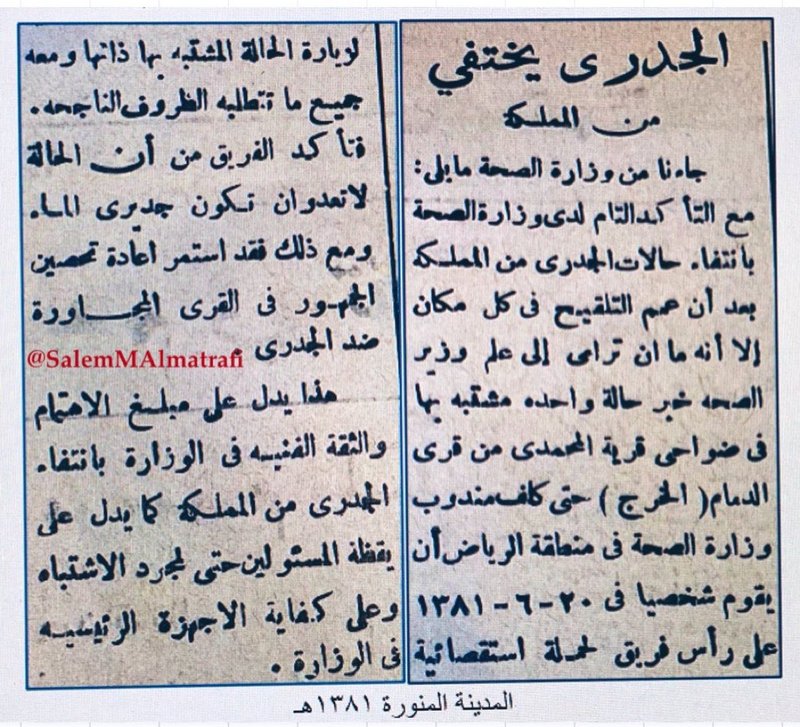 الجدرى يختفي
من المملكة
جاءنا من وزارة الصحة مايلى:
مع التأكد التام لدى وزارة الصحة
بانتفاء حالات الجدرى من المملكة
بعد أن عمم التلقيح فى كل مكان
إلا أنه ما ان ترامى إلى علم وزير
الصحه خبر حالة واحده مشتبه بها
فى ضواحى قرية المحمدى من قرى
الدمام ( الخرج ) حتى كلف مندوب
وزارة الصحة فى منطقة الرياض أن
يقوم شخصيا فى ٢٠-٦-١٣٨١
على رأس فريق لحملة استقصائية
لوبارة الحالة المشتبه بها ذاتها ومعه
جميع ما تتطلبه الظروف الناجحه.
فتأكد الفريق من أن الحالة
لاتعدوان تكون جديرى الماء
ومع ذلك فقد استمر اعادة تحصين
الجمهور فى القرى المجاورة
ضد الجدرى.
@SalemMAlmatrafi
هذا يدل على مبلغ الاهتمام
والثقة الفنيه فى الوزارة بانتفاء
الجدرى من المملكة كما يدل على
يقظة المسئولين حتى لمجرد الاشتباه
وعلى كفاية الاجهزة الرئيسيه
فى الوزارة.
المدينة المنورة ١٣٨١هـ